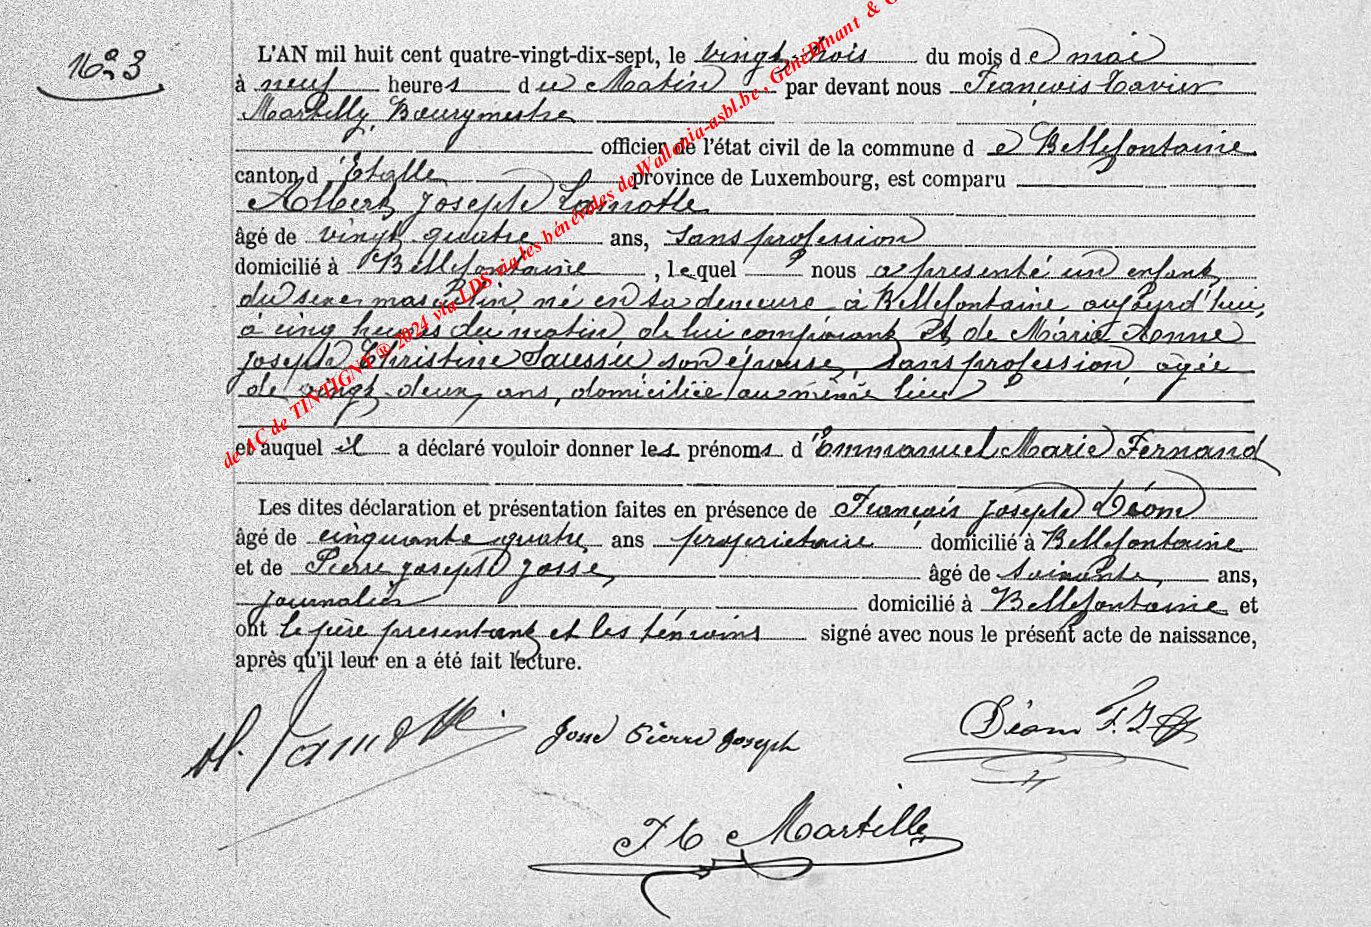 16 3
L'AN mil huit cent quatre-vingt-dix-sept, le vingt-trois du mois de mai
à neuf heures du Matin par devant nous François Xavier
Martilly, Bourgmestre
officier de l'état civil de la commune de Bellefontaine
canton d'Etalle province de Luxembourg, est comparu
Albert Joseph Lamotte
âgé de vingt quatre ans, sans profession
domicilié à Bellefontaine, lequel nous a présenté un enfant
du sexe masculin, né en sa demeure à Bellefontaine aujourd'hui,
à cinq heures du matin de lui comparant et de Marie Anne
Joseph Christine Saussu, son épouse, sans profession, agée
de vingt deux ans, domiciliée au même lieu
et auquel il a déclaré vouloir donner les prénoms d'Emmanuel Marie Fernand
Les dites déclaration et présentation faites en présence de François Joseph Déom
âgé de cinquante quatre ans propriétaire domicilié à Bellefontaine
et de Pierre Joseph Josse, âgé de soixante ans,
journalier domicilié à Bellefontaine et
ont le père présentant et les témoins signé avec nous le présent acte de naissance,
après qu'il leur en a été fait lecture.
A. Lamotte Josse Pierre Joseph Déom F. J.
F X Martilly
de AC de TINTIGNY ® 2024 via LDS via les bénévoles de Wallonia-asbl.be, GénéDinant & G